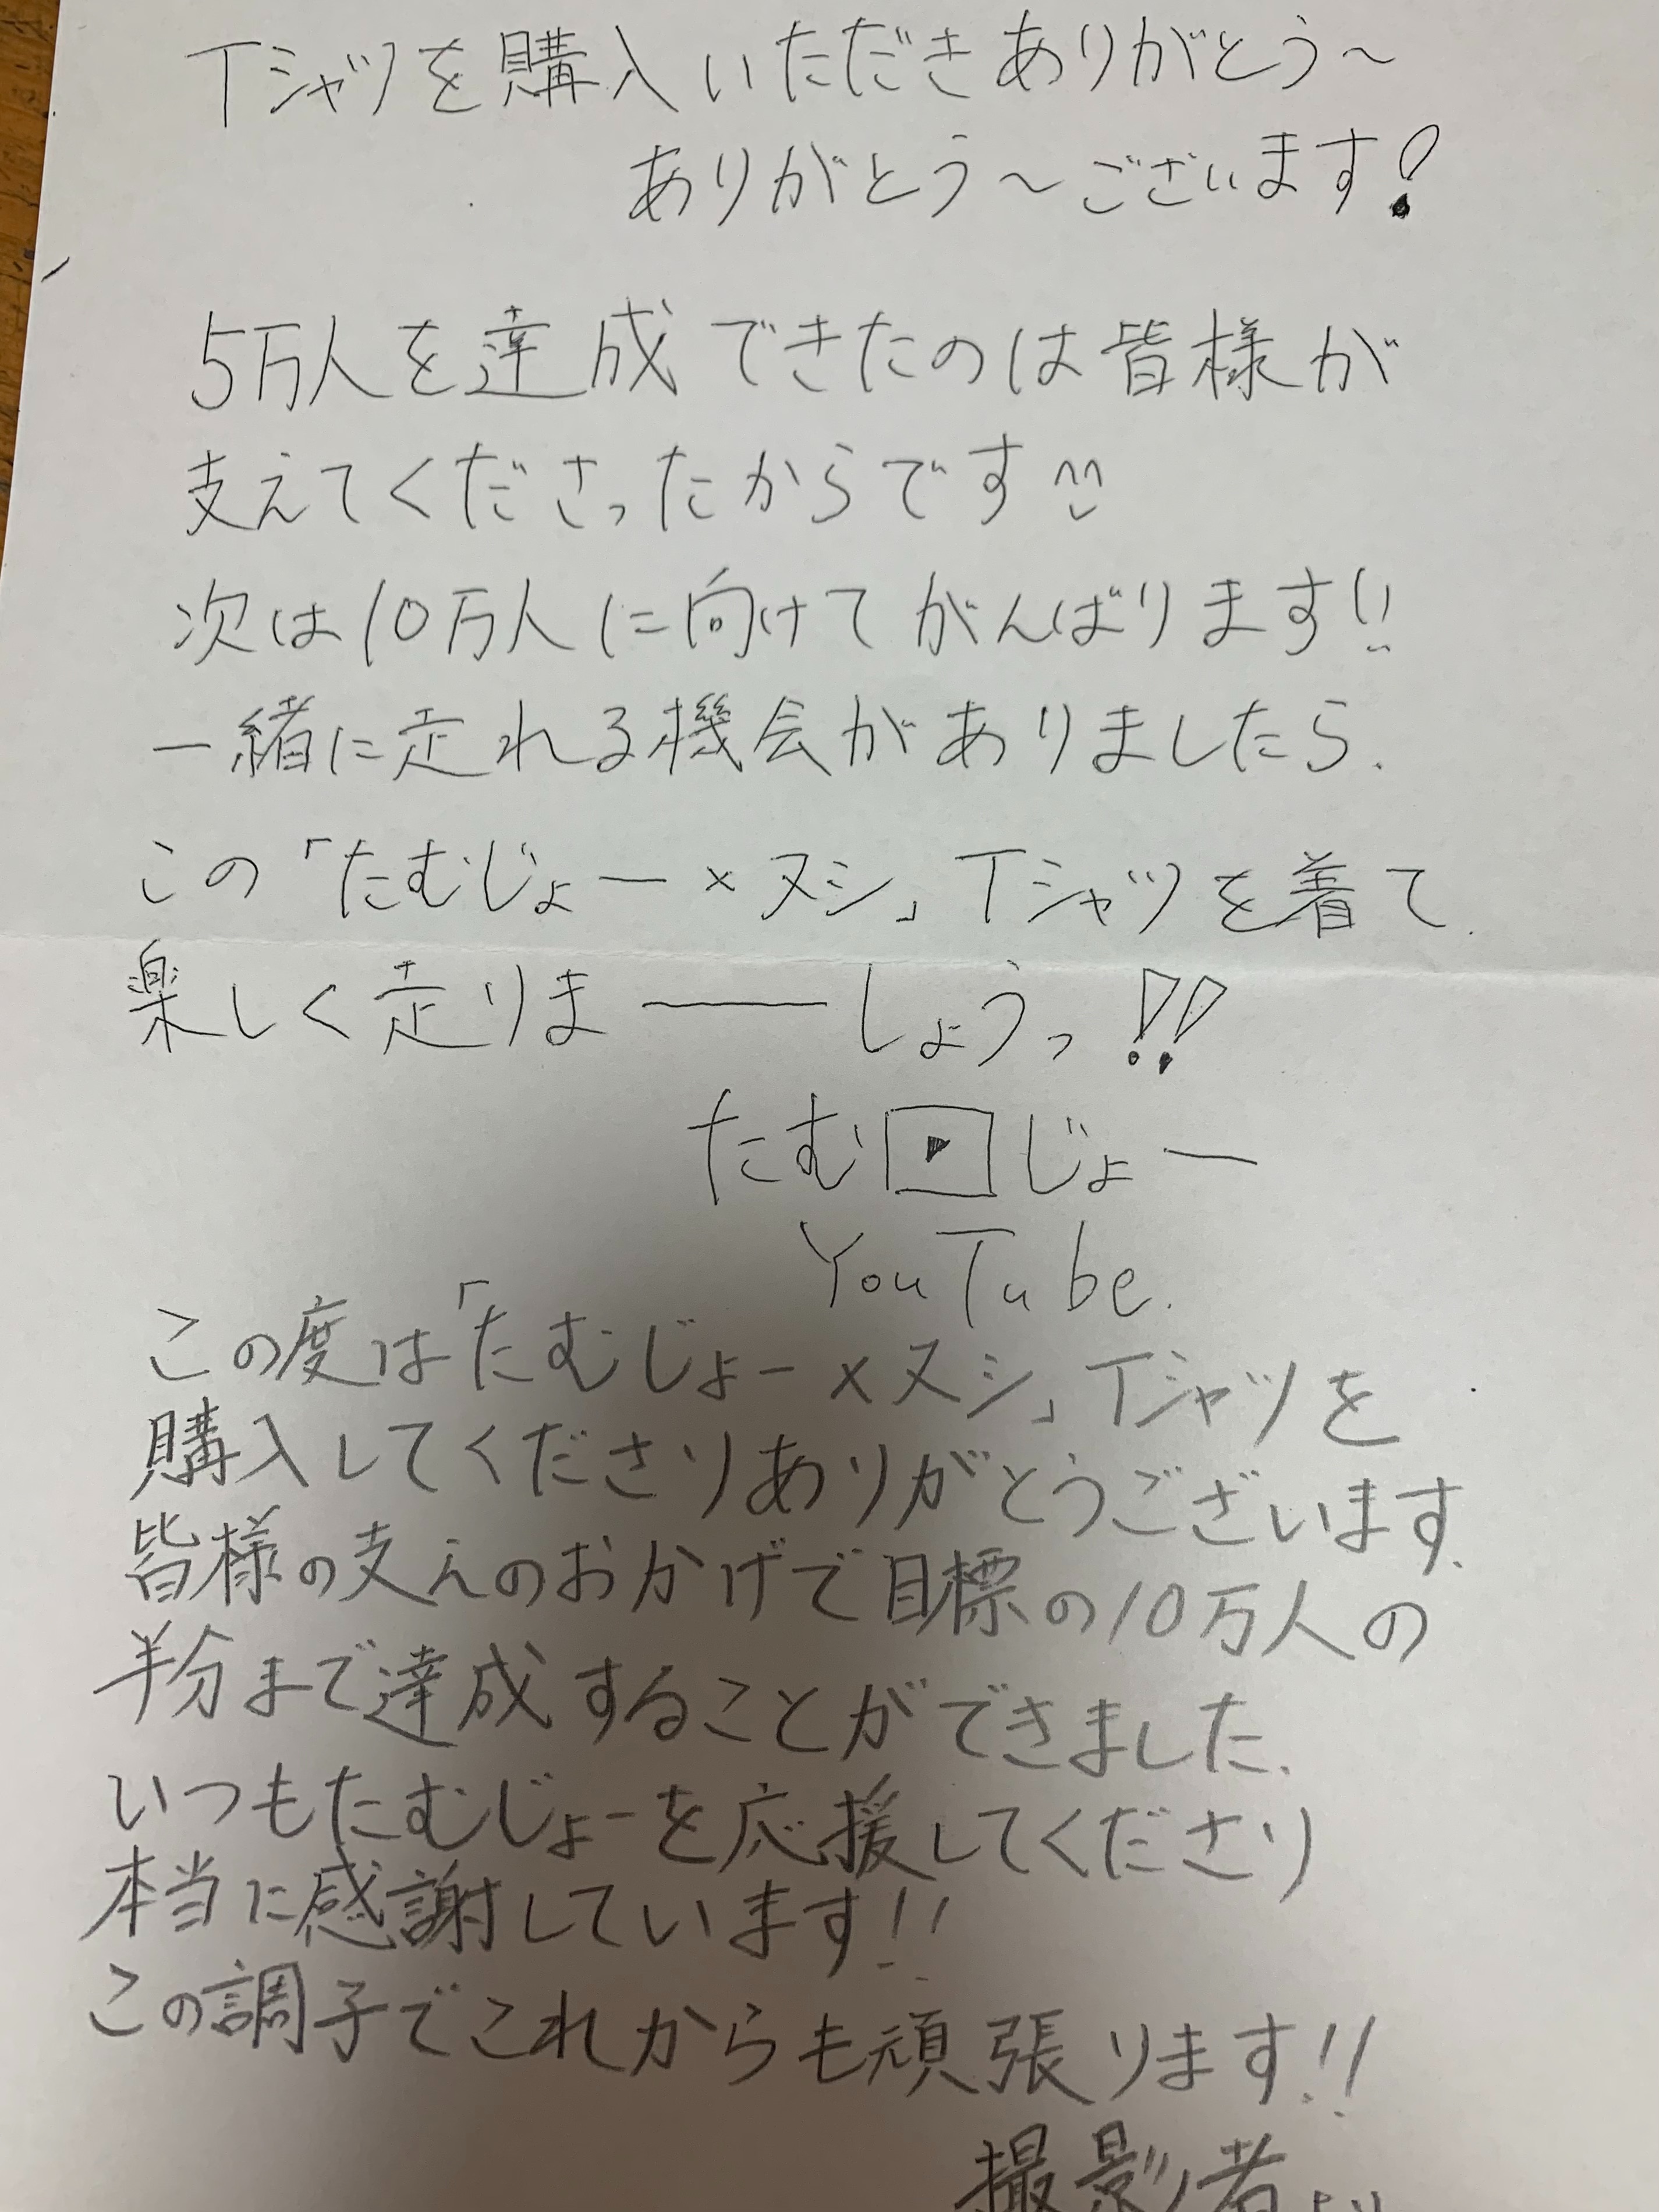 Tシャツを購入いただきありがとう〜
ありがとう〜ございます!
5万人を達成できたのは皆様が
支えてくださったからです
次は10万人に向けてがんばります!!
一緒に走れる機会がありましたら、
この「たむじょー×ヌシ」Tシャツを着て
楽しく走りま――しょうっ!!
たむ▶じょー
YouTube.
この度は「たむじょー×ヌシ」Tシャツを
購入してくださりありがとうございます。
皆様の支えのおかげで目標の10万人の
半分まで達成することができました。
いつもたむじょーを応援してくださり
本当に感謝しています!!
この調子でこれからも頑張ります!!
撮影者より